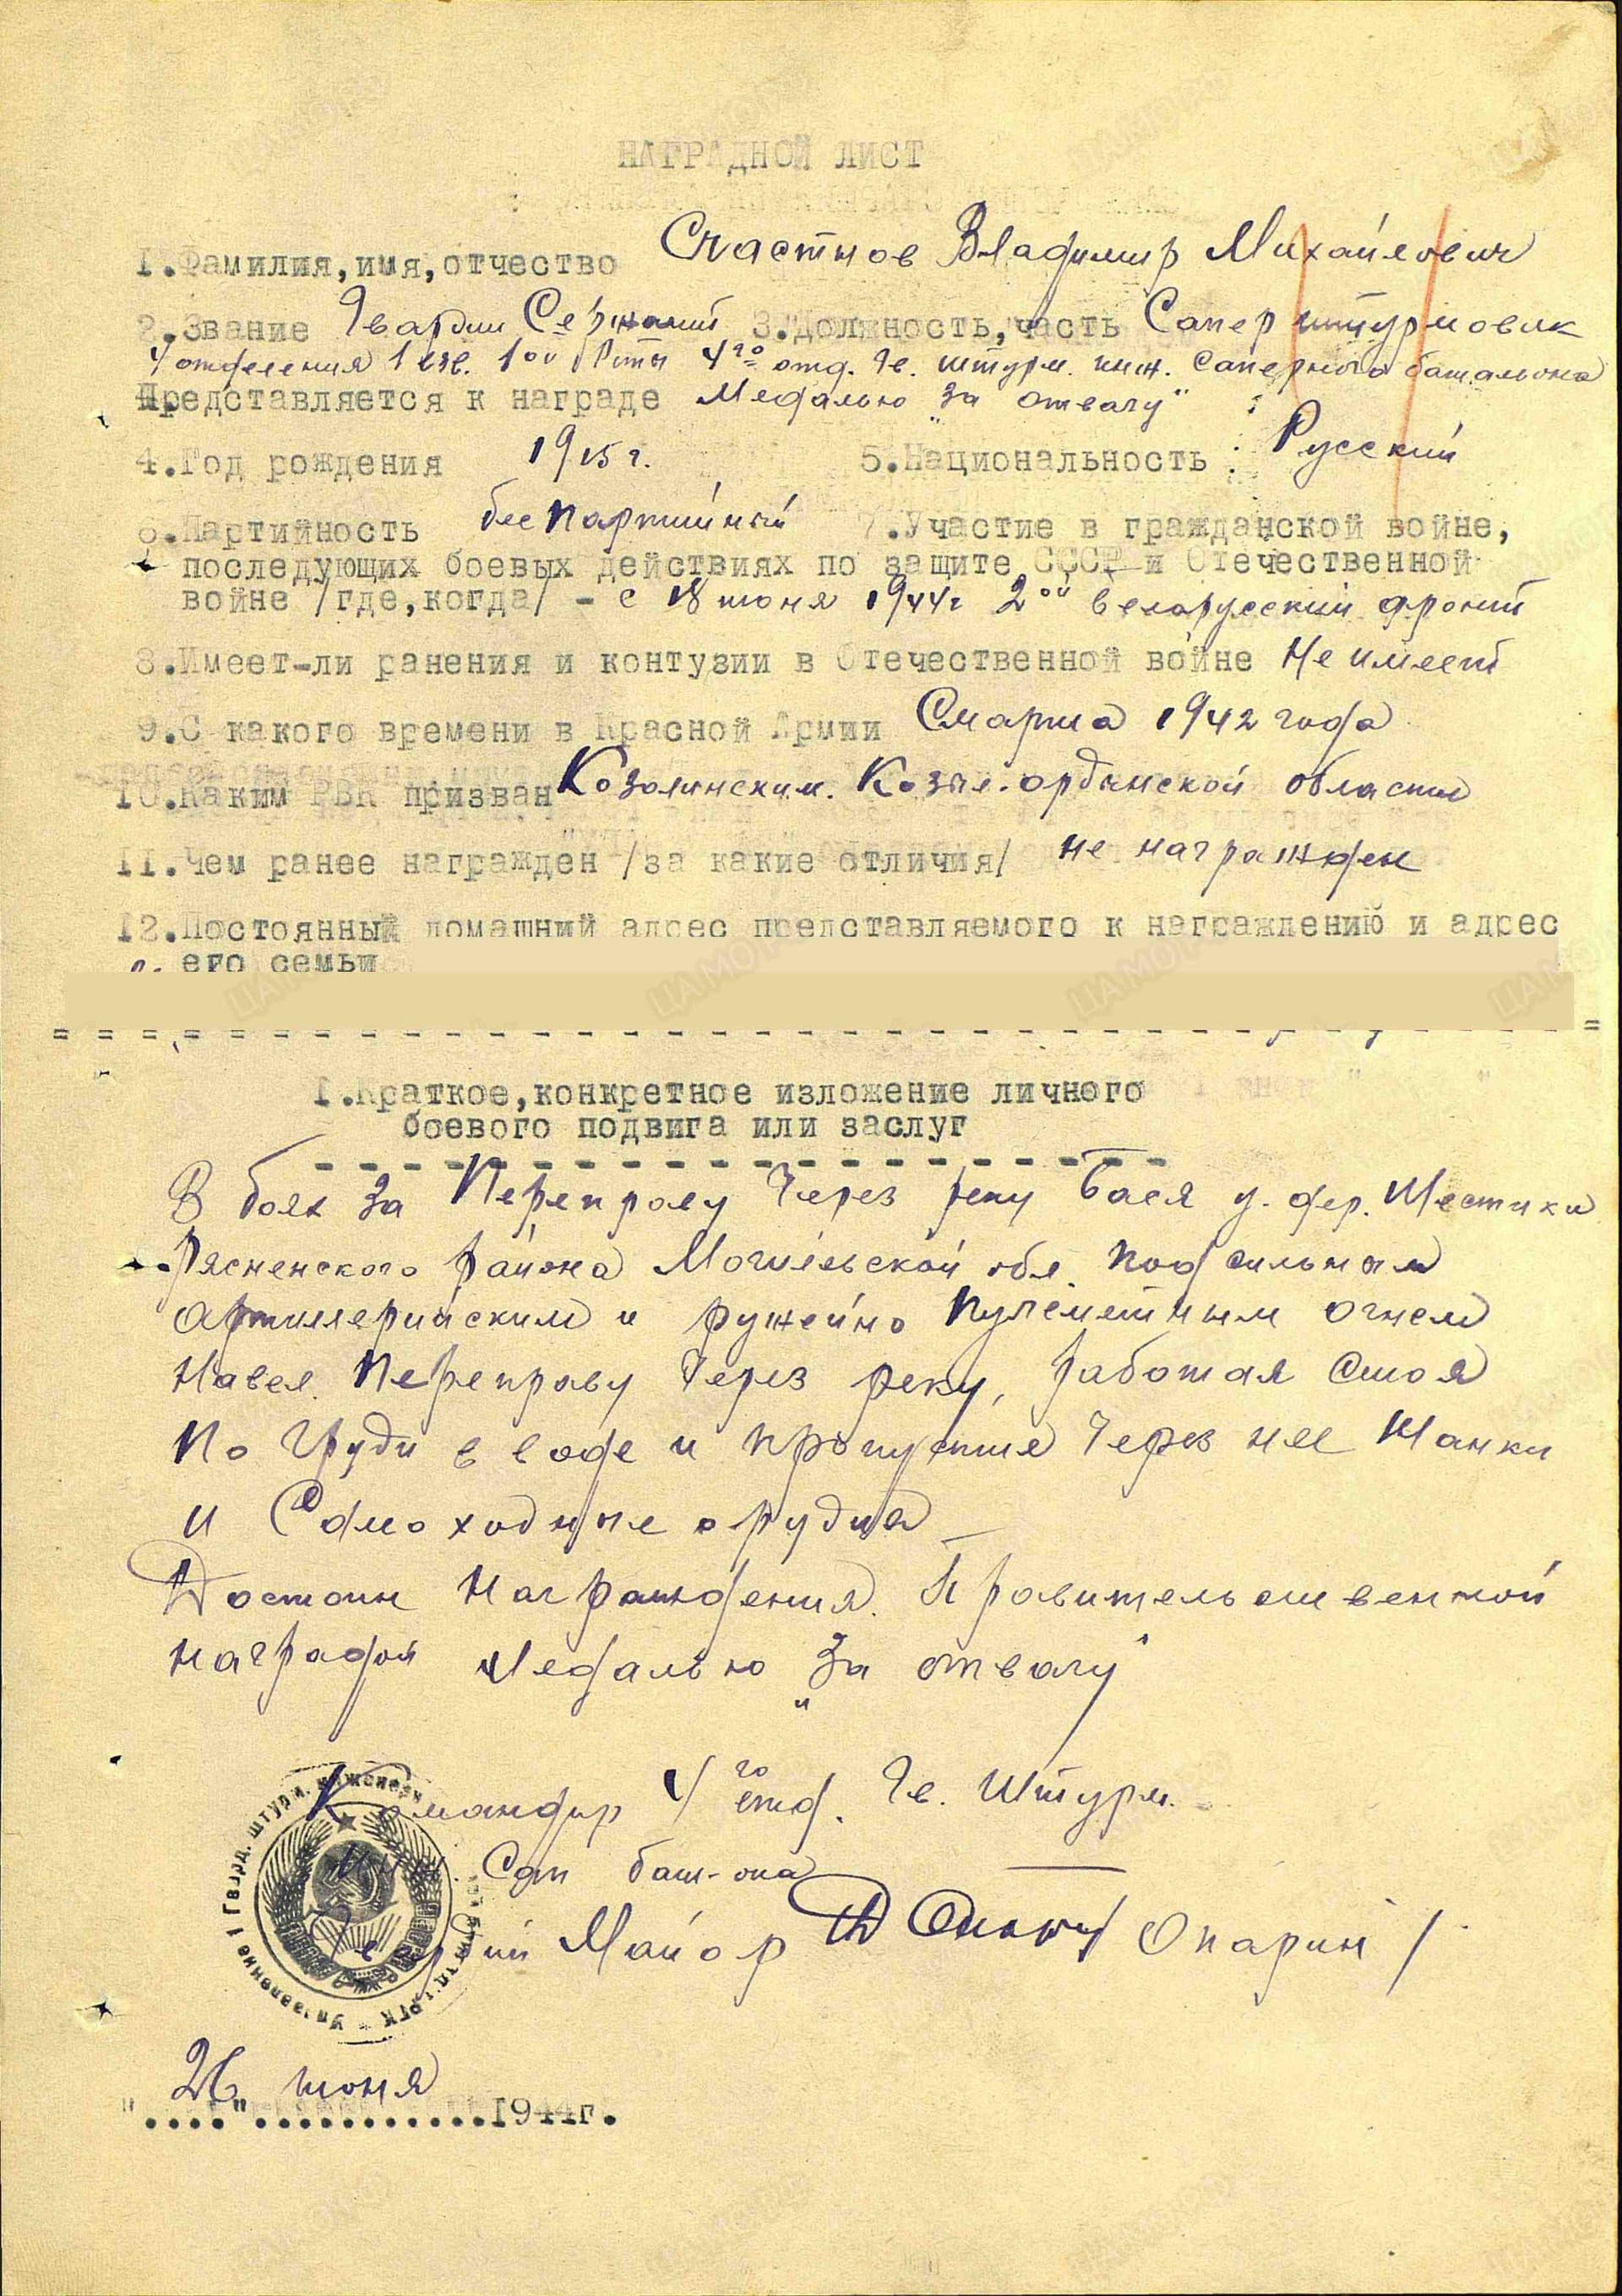 НАГРАДНОЙ ЛИСТ
1.Фамилия,имя,отчество Счастнов Владимир Михайлович
2.Звание Гвардии Сержант 3.Должность,часть Сапер штурмовик
4 отделения 1 взв. 1ой Роты 4го отд. Гв. штурм. инж. саперного батальона
Представляется к награде Медалью "За отвагу"
4.Год рождения 1915 г. 5.Национальность: Русский
6.Партийность беспартийный 7.Участие в гражданской войне,
последующих боевых действиях по защите СССР и Отечественной
войне /где,когда/ - с 18 июня 1944г 2ой Белорусский фронт
8.Имеет-ли ранения и контузии в Отечественной войне Не имеет
9.С какого времени в Красной Армии С марта 1942 года
10.Каким РВК призван Козолинским. Козыл-ордынской области
11.Чем ранее награжден /за какие отличия/ не награжден
12.Постоянный домашний адрес представляемого к награждению и адрес
его семьи
1.Краткое,конкретное изложение личного
боевого подвига или заслуг
В боях за Переправу Через реку Бася у. дер. Шестаки
Рясненского района Могилевской обл. под сильным
артиллерийским и ружейно пулеметным огнем
Навел Переправу Через реку, работая стоя
По груди в воде и пропустив Через нее танки
и Самоходные орудия
Достоин Награждения. Правительственной
наградой Медалью "За отвагу"
Командир 4го отд. Гв. Штурм.
инж. Сап бат-она
Гвардии Майор Опарин /
Управление 1 Гвард. штурм. инженерн
РГК
26 июня
"...."...........1944г.